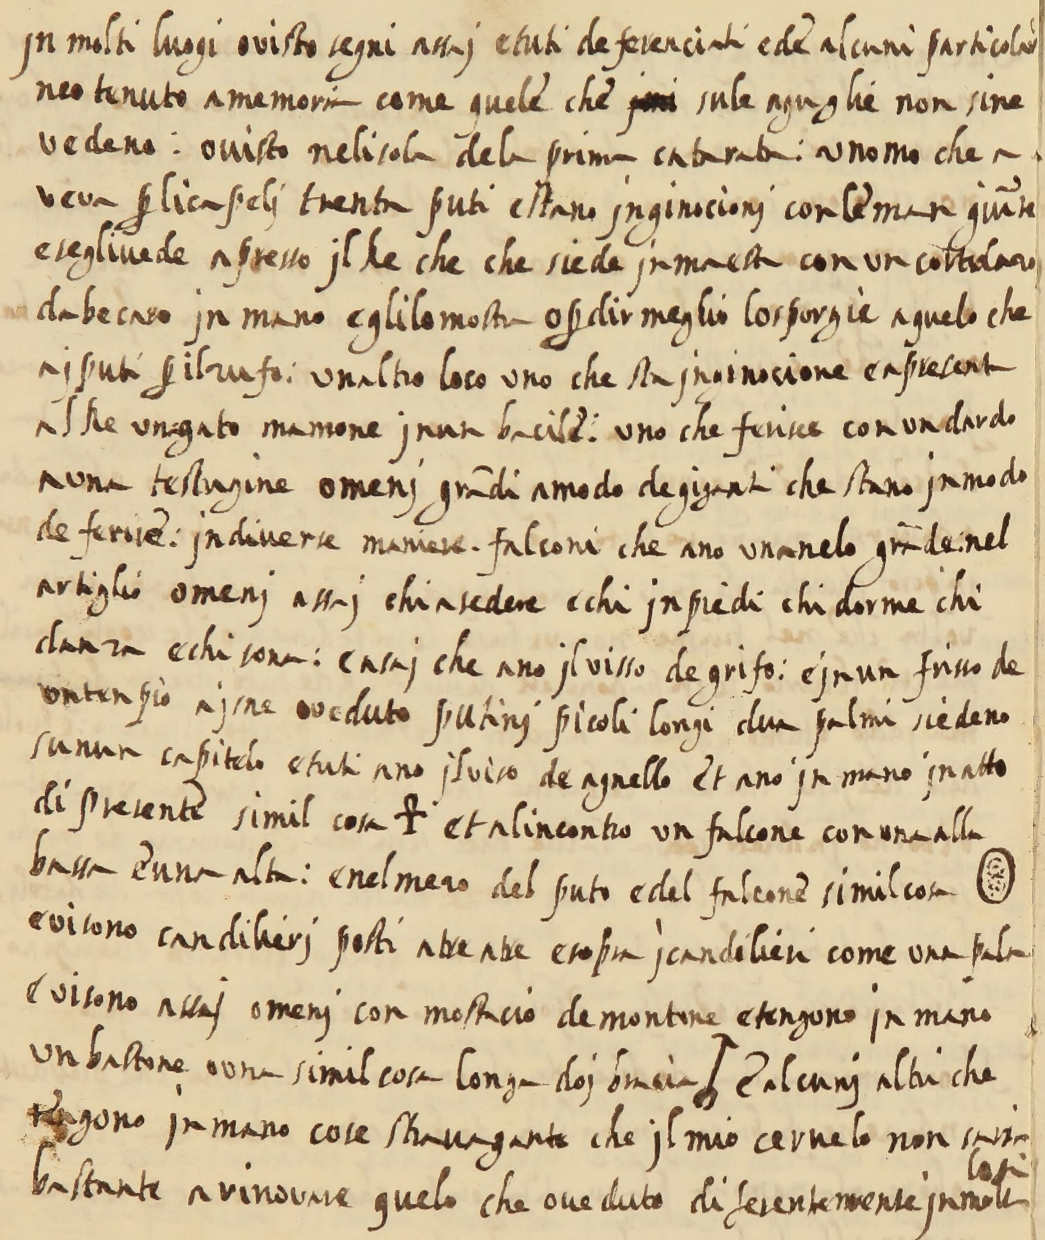 jn molti luogi ovisto segni assaj etuti deferenciati edē alcuni particolari
neo tenuto amemoria come quelē chē sule aguglie non sine
vedeno : ovisto nelisola dela prima catarata : unomo che a
veva p̱ licapelj trenta puti estano jnginocionj conlē man giūte
eseglivede apresso jl Re che che siede jnmaesta con un cortelazo
dabecaro jn mano eglilomostra o p̱ dir meglio losporgie aquelo che
aj puti p̱ ilzufo : unaltro loco uno che sta jnginocione eapresenta
al Re ungato mamone jnun bacilē : uno che ferisce con un dardo
auna testugine omenj grādi amodo degiganti che stano jnmodo
de ferirē : jndiverse maniere . falconi che ano unanelo grāde nel
artiglio omenj assaj chi asedere echi jnpiedi chi dorme chi
danza echi sona : easaj che ano jl visso de grifo : ejnun frisso de
untenpio ajsne oveduto putinj picoli longi dua palmi siedeno
sunun capitelo etuti ano jlviso de agnello et ano jn mano jnatto
di presentē simil cosa ☥ et alincontro un falcone con unaalla
bassa ēuna alta : enelmezo del puto edel falconē similcosa
evisono candilierj posti atre atre esopra jcandilieri come una pala
evisono assaj omenj con mostacio demontone etengono jn mano
un bastone ouna similcosa longa doj bracia ēalcunj altri che
tengono jnmano cose stravagante che jl mio cervelo non saria
bastante arinovare quelo che oveduto diferentemente jnmolti
losi